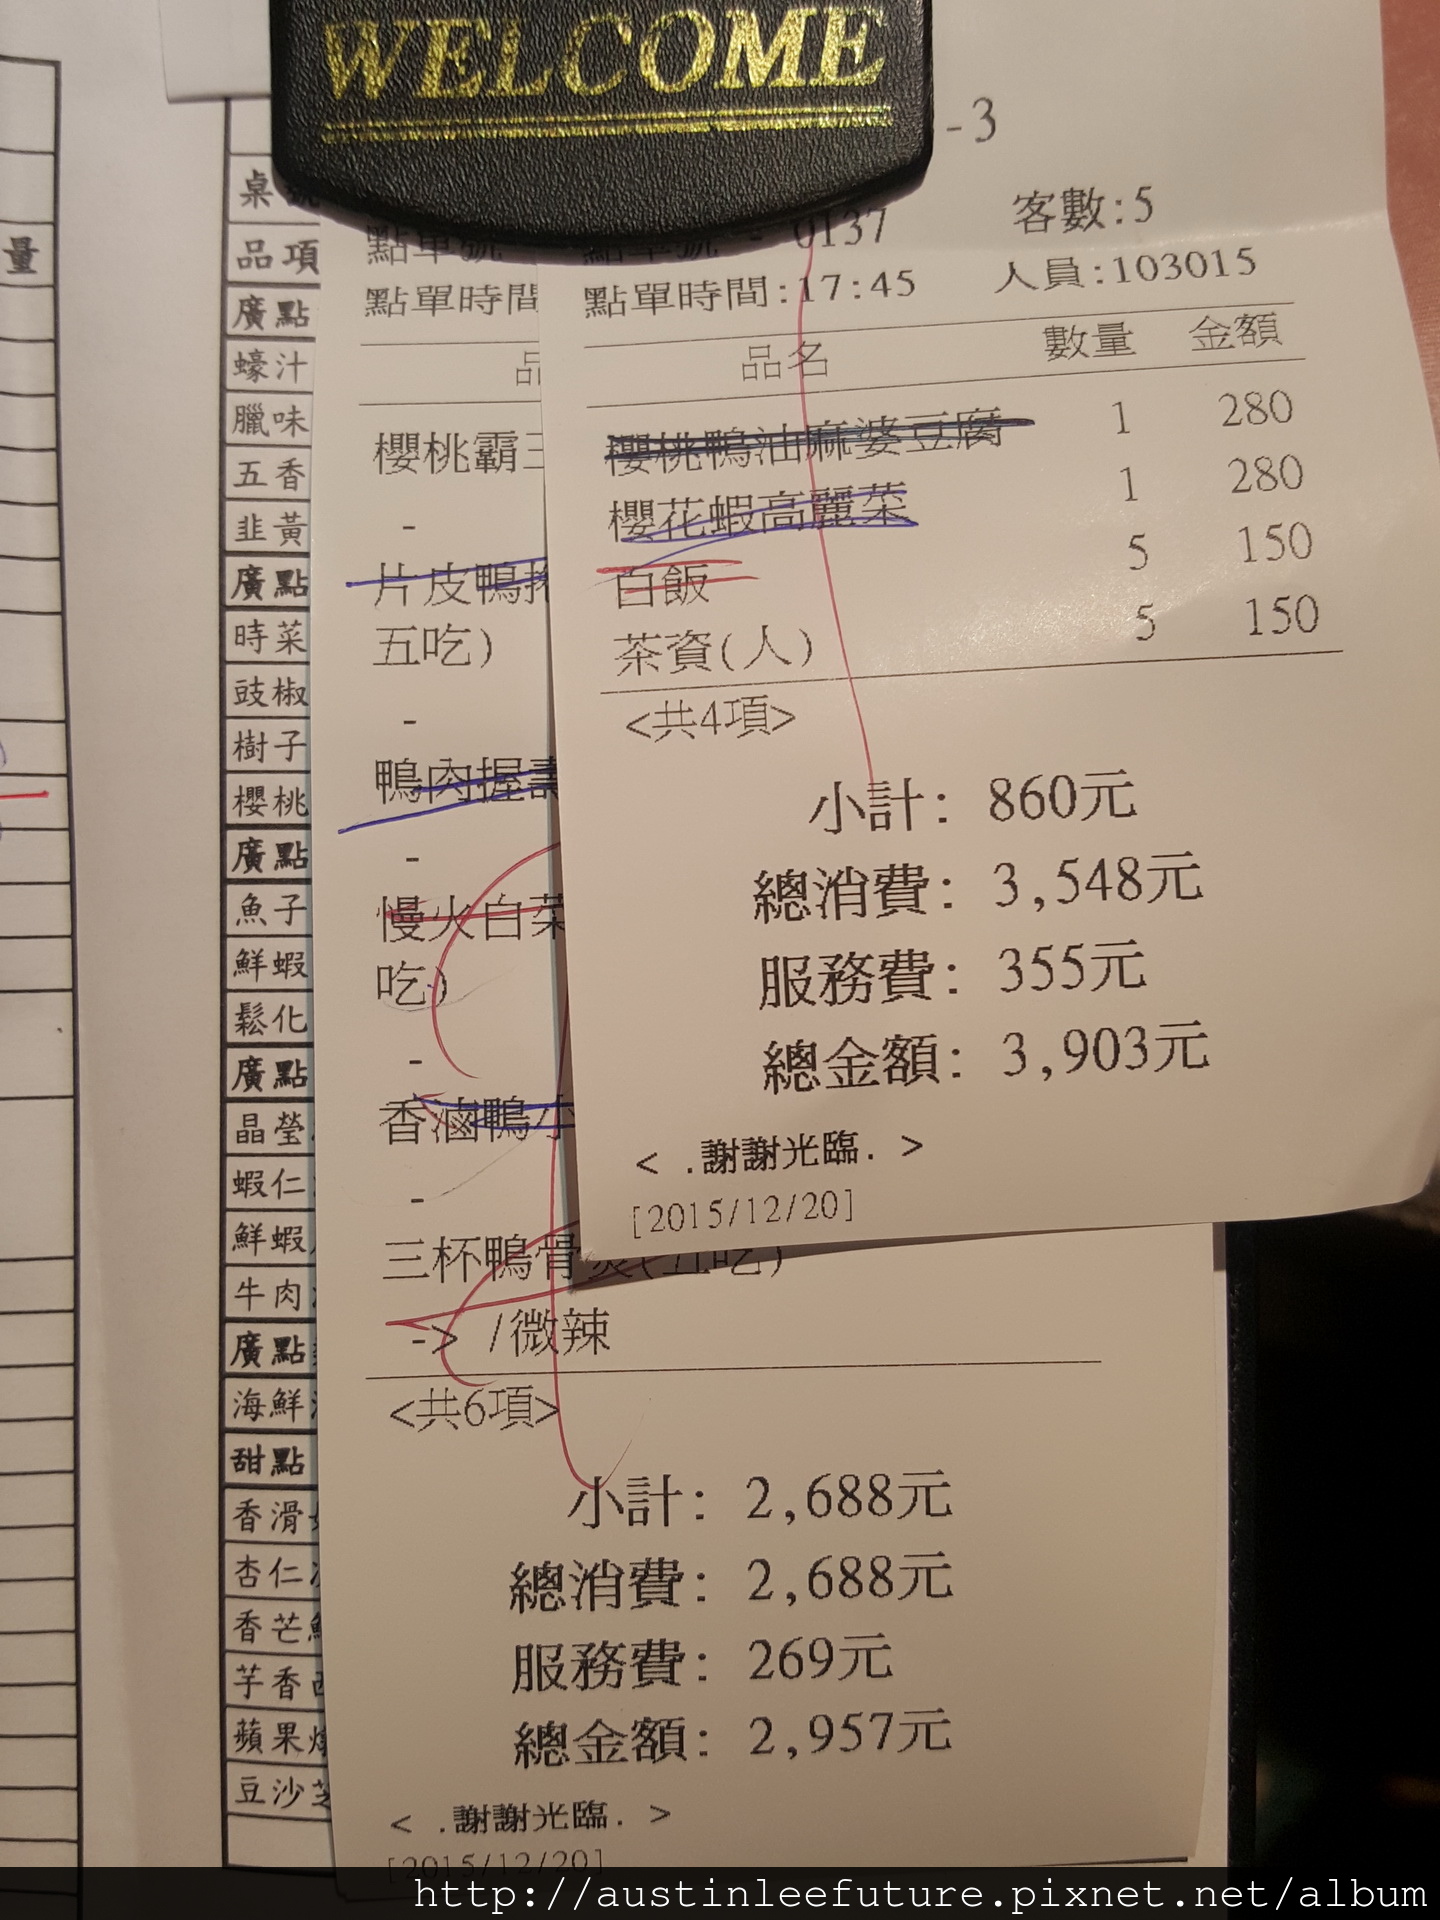 WELCOME
-3
客數:5
0137
點單時間:17:45
人員:103015
品名 數量 金額
櫻桃鴨油麻婆豆腐 1 280
櫻花蝦高麗菜 1 280
白飯 5 150
茶資(人) 5 150
<共4項>
小計: 860元
總消費: 3,548元
服務費: 355元
總金額: 3,903元
< .謝謝光臨. >
[2015/12/20]
點單號
點單時間
櫻桃霸
-
片皮鴨
五吃)
-
鴨肉握壽
-
慢火白菜
吃)
-
香滷鴨小
-
三杯鴨骨
-> /微辣
<共6項>
小計: 2,688元
總消費: 2,688元
服務費: 269元
總金額: 2,957元
< .謝謝光臨. >
[2015/12/20]
量
桌
品項
廣點
蠔汁
臘味
五香
韭黃
廣點
時菜
豉椒
樹子
櫻桃
廣點
魚子
鮮蝦
鬆化
廣點
晶瑩
蝦仁
鮮蝦
牛肉
廣點
海鮮
甜點
香滑
杏仁
香芒
芋香
蘋果
豆沙
http://austinleefuture.pixnet.net/album